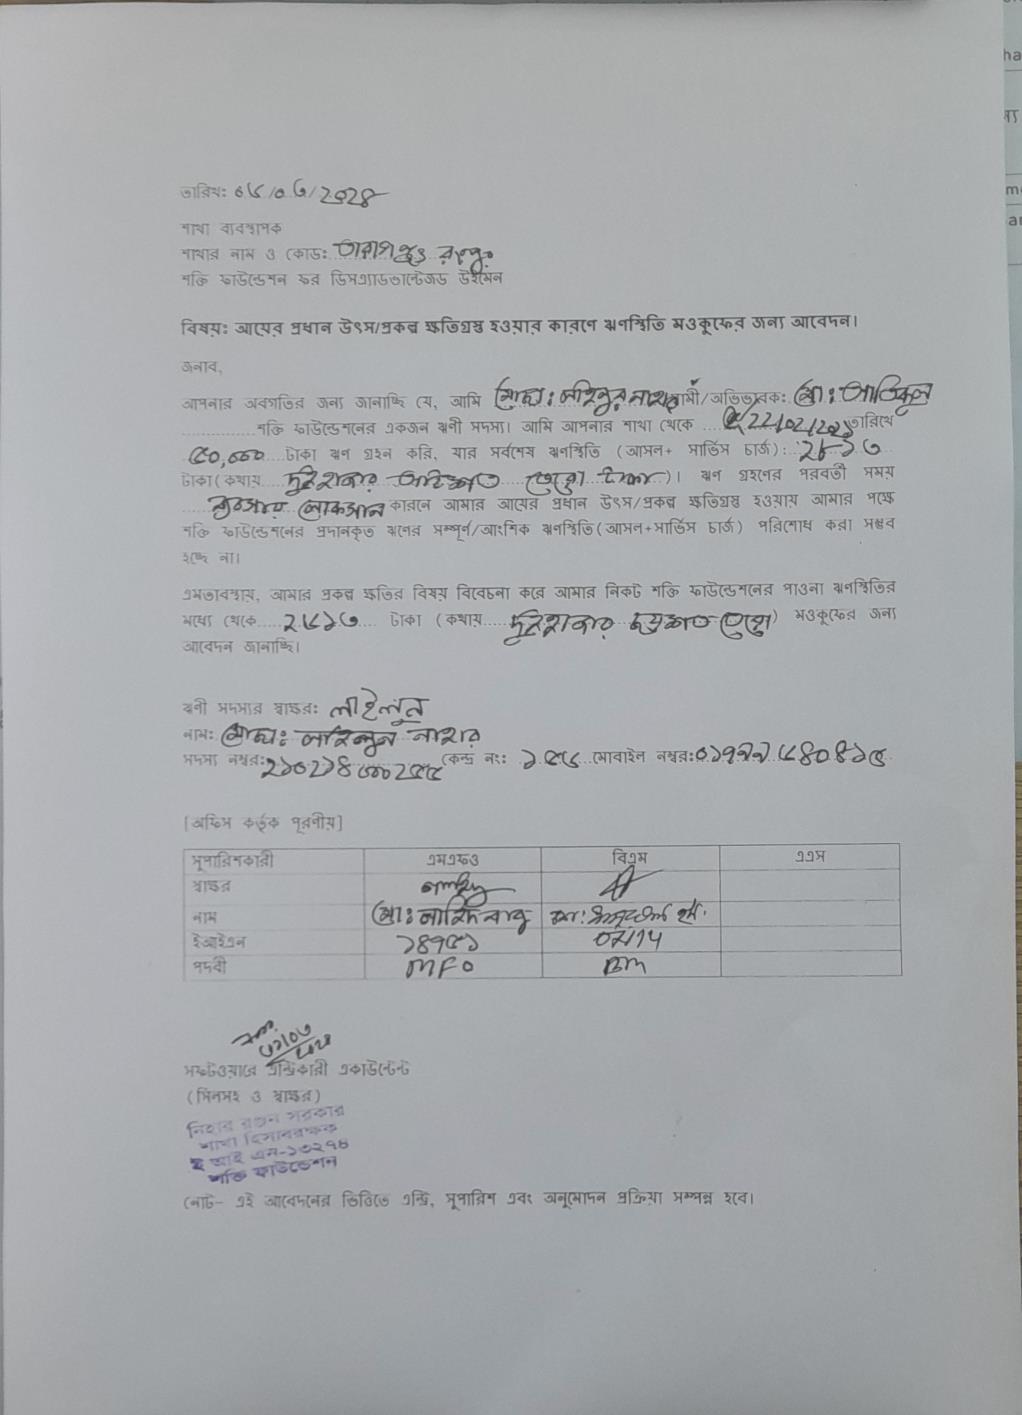 তারিখ: ০৬/০৩/২০২৪
শাখা ব্যবস্থাপক
শাখার নাম ও কোড: তারাগঞ্জ রংপুর
শক্তি ফাউন্ডেশন ফর ডিসএ্যাডভান্টেজড উইমেন
বিষয়: আয়ের প্রধান উৎস/প্রকল্প ক্ষতিগ্রস্ত হওয়ার কারণে ঋণস্থিতি মওকুফের জন্য আবেদন।
জনাব,
আপনার অবগতির জন্য জানাচ্ছি যে, আমি মোছা: লাইলুন নাহার স্বামী/অভিভাবক: মো: আতিকুল
শক্তি ফাউন্ডেশনের একজন ঋণী সদস্য। আমি আপনার শাখা থেকে তারিখে
৫০,০০০ টাকা ঋণ গ্রহন করি, যার সর্বশেষ ঋণস্থিতি (আসল+ সার্ভিস চার্জ): ২৮১৩
টাকা (কথায় দুইহাজার আটশত তেরো টাকা)। ঋণ গ্রহণের পরবর্তী সময়
ব্যবসায় লোকসান কারনে আমার আয়ের প্রধান উৎস/প্রকল্প ক্ষতিগ্রস্ত হওয়ায় আমার পক্ষে
শক্তি ফাউন্ডেশনের প্রদানকৃত ঋণের সম্পূর্ণ/আংশিক ঋণস্থিতি (আসল+সার্ভিস চার্জ) পরিশোধ করা সম্ভব
হচ্ছে না।
এমতাবস্থায়, আমার প্রকল্প ক্ষতির বিষয় বিবেচনা করে আমার নিকট শক্তি ফাউন্ডেশনের পাওনা ঋণস্থিতির
মধ্যে থেকে ২৬১৩ টাকা (কথায় দুইহাজার ছয়শত তেরো) মওকুফের জন্য
আবেদন জানাচ্ছি।
ঋণী সদস্যর স্বাক্ষর: লাইলুন
নাম: মোছা: লাইলুন নাহার
সদস্য নম্বর: কেন্দ্র নং: ১৫৬ মোবাইল নম্বর:
[অফিস কর্তৃক পূরণীয়]
সুপারিশকারী এমএফও বিএম এএস
স্বাক্ষর
নাম মো: নাহিদ বাবু
ইআইএন ১৪৭৫১ 02114
পদবী MFO BM
সফটওয়ারে এন্ট্রিকারী একাউন্টেন্ট
(সিলসহ ও স্বাক্ষর)
নিহার রঞ্জন সরকার
শাখা হিসাবরক্ষক
ই আই এন-১৩২৭৪
শক্তি ফাউন্ডেশন
নোট- এই আবেদনের ভিত্তিতে এন্ট্রি, সুপারিশ এবং অনুমোদন প্রক্রিয়া সম্পন্ন হবে।